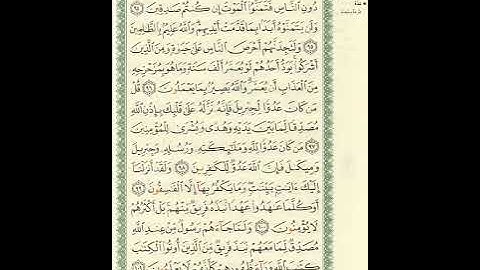 دُونِ ٱلنَّاسِ فَتَمَنَّوُا۟ ٱلْمَوْتَ إِن كُنتُمْ صَـٰدِقِينَ ٩٤
وَلَن يَتَمَنَّوْهُ أَبَدًۢا بِمَا قَدَّمَتْ أَيْدِيهِمْ ۗ وَٱللَّهُ عَلِيمٌۢ بِٱلظَّـٰلِمِينَ
٩٥ وَلَتَجِدَنَّهُمْ أَحْرَصَ ٱلنَّاسِ عَلَىٰ حَيَوٰةٍ وَمِنَ ٱلَّذِينَ
أَشْرَكُوا۟ ۚ يَوَدُّ أَحَدُهُمْ لَوْ يُعَمَّرُ أَلْفَ سَنَةٍ وَمَا هُوَ بِمُزَحْزِحِهِۦ
مِنَ ٱلْعَذَابِ أَن يُعَمَّرَ ۗ وَٱللَّهُ بَصِيرٌۢ بِمَا يَعْمَلُونَ ٩٦ قُلْ
مَن كَانَ عَدُوًّا لِّجِبْرِيلَ فَإِنَّهُۥ نَزَّلَهُۥ عَلَىٰ قَلْبِكَ بِإِذْنِ ٱللَّهِ
مُصَدِّقًا لِّمَا بَيْنَ يَدَيْهِ وَهُدًى وَبُشْرَىٰ لِلْمُؤْمِنِينَ
٩٧ مَن كَانَ عَدُوًّا لِّلَّهِ وَمَلَـٰٓئِكَتِهِۦ وَرُسُلِهِۦ وَجِبْرِيلَ
وَمِيكَىٰلَ فَإِنَّ ٱللَّهَ عَدُوٌّ لِّلْكَـٰفِرِينَ ٩٨ وَلَقَدْ أَنزَلْنَآ
إِلَيْكَ ءَايَـٰتٍۭ بَيِّنَـٰتٍ ۖ وَمَا يَكْفُرُ بِهَآ إِلَّا ٱلْفَـٰسِقُونَ ٩٩
أَوَكُلَّمَا عَـٰهَدُوا۟ عَهْدًا نَّبَذَهُۥ فَرِيقٌ مِّنْهُم ۚ بَلْ أَكْثَرُهُمْ
لَا يُؤْمِنُونَ ١٠٠ وَلَمَّا جَآءَهُمْ رَسُولٌ مِّنْ عِندِ ٱللَّهِ
مُصَدِّقٌ لِّمَا مَعَهُمْ نَبَذَ فَرِيقٌ مِّنَ ٱلَّذِينَ أُوتُوا۟ ٱلْكِتَـٰبَ
كِتَـٰبَ ٱللَّهِ وَرَآءَ ظُهُورِهِمْ كَأَنَّهُمْ لَا يَعْلَمُونَ ١٠١